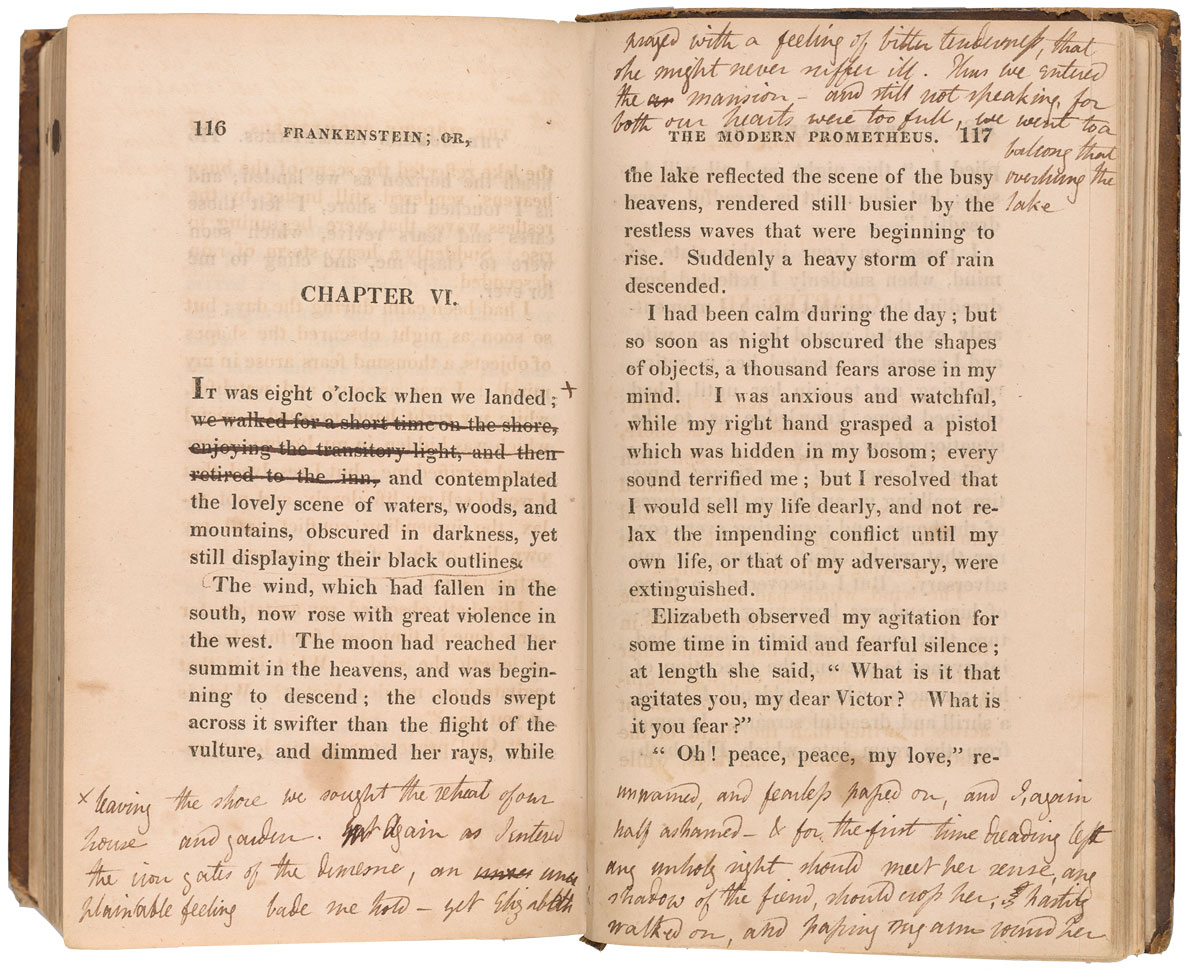 116 FRANKENSTEIN; OR,
CHAPTER VI.
IT was eight o'clock when we landed; +
we walked for a short time on the shore,
enjoying the transitory light, and then
retired to the inn, and contemplated
the lovely scene of waters, woods, and
mountains, obscured in darkness, yet
still displaying their black outlines.
The wind, which had fallen in the
south, now rose with great violence in
the west. The moon had reached her
summit in the heavens, and was begin-
ning to descend; the clouds swept
across it swifter than the flight of the
vulture, and dimmed her rays, while
x leaving the shore we sought the retreat of our
house and garden. Yet Again as I entered
the iron gates of the demesne, an unex
plainable feeling bade me hold – yet Elizabeth
prayed with a feeling of bitter tenderness, that
she might never suffer ill. Thus we entered
the mansion – and still not speaking, for
both our hearts were too full, we went to a
balcony that
overhung the
lake
THE MODERN PROMETHEUS. 117
the lake reflected the scene of the busy
heavens, rendered still busier by the
restless waves that were beginning to
rise. Suddenly a heavy storm of rain
descended.
I had been calm during the day; but
so soon as night obscured the shapes
of objects, a thousand fears arose in my
mind. I was anxious and watchful,
while my right hand grasped a pistol
which was hidden in my bosom; every
sound terrified me; but I resolved that
I would sell my life dearly, and not re-
lax the impending conflict until my
own life, or that of my adversary, were
extinguished.
Elizabeth observed my agitation for
some time in timid and fearful silence;
at length she said, “ What is it that
agitates you, my dear Victor? What is
it you fear?”
“ Oh! peace, peace, my love,” re-
unwarned, and fearless passed on, and I, again
half ashamed – & for the first time dreading left
any unholy sight should meet her sense, any
shadow of the fiend, should cross her; I hastily
walked on, and passing my arm round her